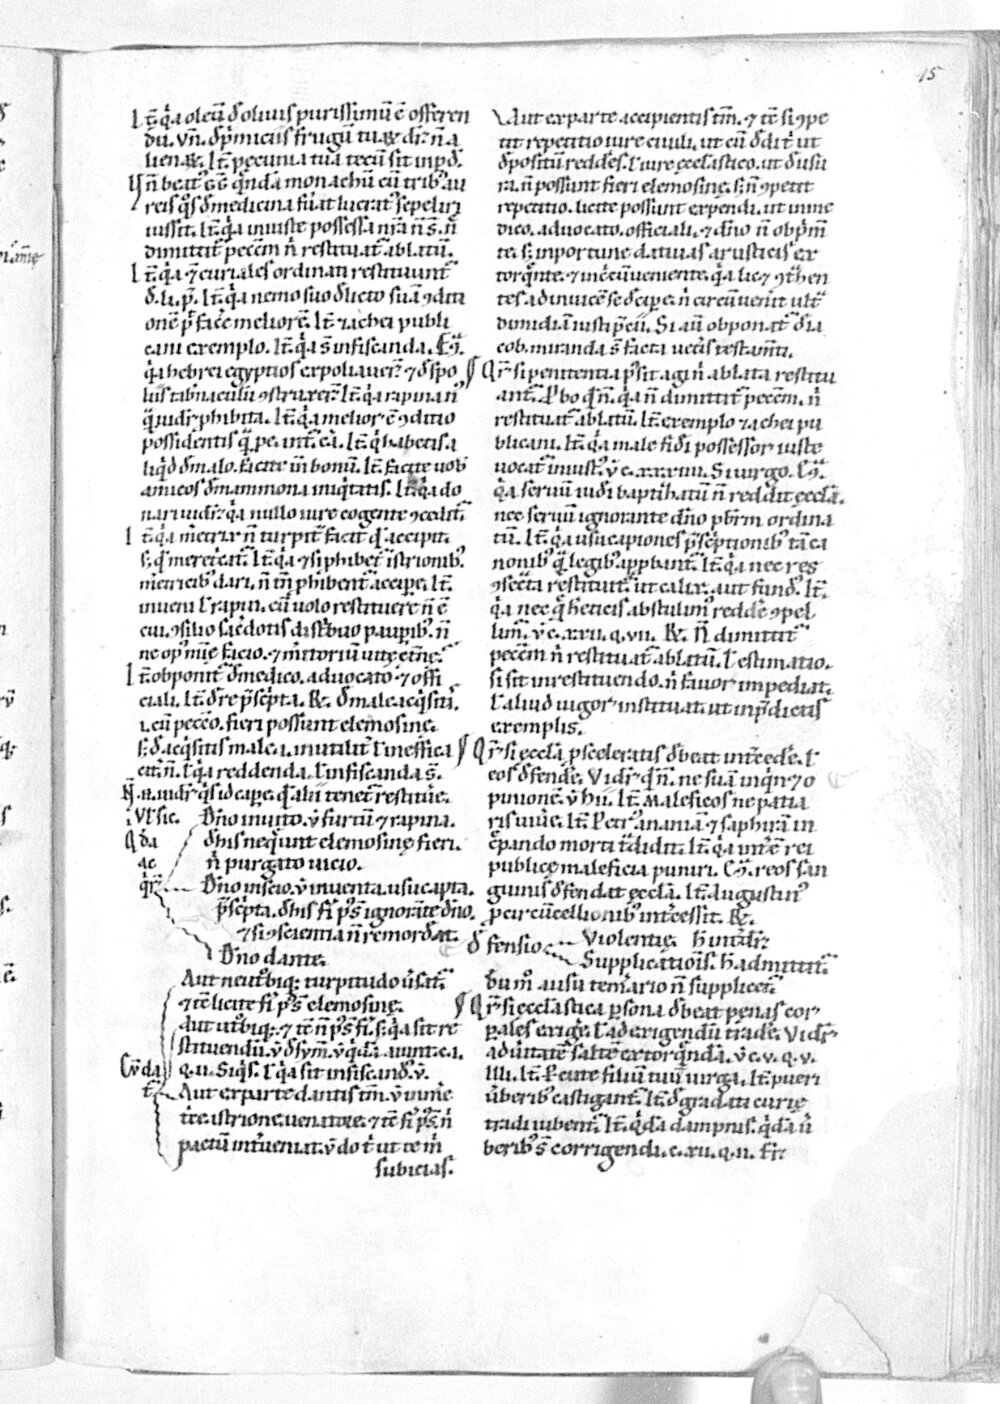 15
It̄. q̄a oleū d̄ olivis purissimū ē offeren
dū. vn̄. d̄ p̄miciis frugū tuaꝝ. dr̄ n̄ a
lienaꝝ. It̄. pecunia tua tecū sit in p̄d.
n̄ beat' G̃G. q̄ndā monachū cū trib' au
reis q̄s d̄ medicina fu͛at lucrat' sepeliri
iussit. It̄. q̄a iniuste possessa nr̄a n̄ s̄. n̄
dimittit̄ peccm̄ n̄ restituat̄ ablatū.
It̄. q̄a ⁊ curiales ordinati restituunt̄
d̄. li. p̄. It̄. q̄a nemo suo d̄licto suā ꝯditi
onē p̄t face meliorē. It̄. zachei publi
cani exemplo. It̄. q̄a s̄ infiscanda.
q̄a hebrei egyptios expoliauer̄ ⁊ d̄ spo
liis tab̄naculū ꝯstruxer̄. It̄. q̄a rapina n̄
q̄ uidr̄ phibita. It̄. q̄a melior ē ꝯditio
possidentis
liq̄d d̄ malo. facite in bonū. It̄. facite uob̄
amicos d̄ mammona iniq̄tatis. It̄. q̄a do
nari uidr̄ q̄a nullo iure cogente ꝯcedit̄.
It̄. q̄a meretrix n̄ turpit̄ facit q̄ accipit.
s; q̄ meretricat̄. It̄. q̄a ⁊ si phibet̄ istrionib'
meretricib' dari. n̄ tn̄ phibent̄ accipe. It̄.
inueni l̄ rapui. cū uolo restituere n̄ ē
cui. ꝯsilio sacdotis distribuo paupib'. n̄
ne op' mīe facio. ⁊ m̄itoriū uitę et̄nę.
It̄. obponit̄ d̄ medico. aduocato. ⁊ offi
ciali. It̄. d̄ re p̄sc̄pta. R̄. d̄ male acq̄sitis.
.i. cū pecc̄o. fieri possunt elemosinę.
s; d̄ acq̄sitis male. i. inutilit̄ l̄ ineffica
cit̄. n̄. l̄ q̄a reddenda. l̄ infiscanda s̄.
N̄. n. uidr̄ q̄s id cape. q̄ alii tenet̄ restitue.
.Vl' sic.
Q̄da
ac
q̄r̄
Dn̄o inuito. v̄ furtū ⁊ rapina.
d̄ his neq̄unt elemosinę fieri.
n̄ purgato uicio.
Dn̄o inscio. v̄ inuenta. usucapta.
p̄sc̄pta. d̄ his fi p̄s ignorāte dn̄o.
⁊ si ꝯscientia n̄ remordeat.
Dn̄o dante.
Aut neut̄biq;. turpitudo u͛sat̄
⁊ tc̄ licite fi p̄s elemosinę.
Aut ut̄biq;. ⁊ tc̄ n̄ p̄s fi. s; q̄a sit re
stituendū. v̄ d̄ sym. v̄ q̄dā aiunt. c. i.
q. ii. Siq̄s. l̄ q̄a sit infiscand. v̄.
Q̄da
t̄
Aut ex parte dantis tm̄. v̄ in me
t̄ce. istrione. uenatore. ⁊ tc̄ fi p̄s. n̄
pactū int̄ueniat. v̄ do t̄ ut te m̄
subicias.
Aut ex parte accipientis tm̄. ⁊ tc̄ si ꝯpe
tit repetitio iure ciuili. ut cū d̄dit̄ ut
d̄positū reddēs. l̄ iure ęcclastico. ut d̄ usu
ra. n̄ possunt fieri elemosinę. si n̄ ꝯpetit
repetitio. licite possunt expendi. ut in me
dico. aduocato. officiali. ⁊ dn̄o n̄ obp̄m̄
te. s; inportune datiuas a rusticis ex
torq̄nte. ⁊ in eā ueniente. q̄a lic; ꝯt̄hen
tes ad inuicē se decipe. n̄ circūuen̄it ult̄
dimidiā iusti p̄cii. Si aū obponat̄ d̄ ia
cob. miranda s̄ facta uetis testam̄ti.
Qr̄. si penitentia p̄sit agi n̄ ablata restitu
ant̄. Pbo q̄ n̄. q̄a n̄ dimittit̄ pecc̄m. n̄
restituat̄ ablatū. It̄. exemplo zachei pu
blicani. It̄. q̄a male fidi possessor iuste
uocat̄ iniust'. v̄ c. xxxiiii. Si uirgo.
q̄a seruū iudi baptizatū n̄ reddit ęcclā.
nec seruū ignorante dn̄o pbrm̄ ordina
tū. It̄. q̄a usucapiones p̄sc̄ptionib' tā ca
nonib' q̄ legib' appbant̄. It̄. q̄a nec res
ꝯsec̄ta restituit̄. ut calix. aut fund'. It̄.
q̄a nec q̄ h̄eticis abstulim' redde ꝯpel
lim̄. v̄ c. xxii. q. vii. R̄. N̄ dimittit̄
pecc̄m n̄ restituat̄ ablatū. l̄ estimatio.
si sit in restituendo. n̄ fauor impediat.
l̄ aliud uigor instituat. ut in p̄dictis
exemplis.
Qr̄. si ęcclā p sceleratis d̄beat int̄cede. l̄
eos d̄fende. Vidr̄ q̄ n̄. ne suā inq̄net o
pinionē. v̄ hii. It̄. maleficos ne patia
ris uiue. It̄. Petr' ananiā ⁊ saphirā in
c̄pando morti t̄didit. It̄. q̄a int̄ē rei
publicę maleficia puniri. reos san
guinis d̄fendat ęcclā. It̄. Augustin'
p circūcellionib' int̄cessit. R̄.
d̄fensio
Violentię. h int̄dr̄
Supplicationis. h admittit̄
dū m̊ ausu tem̄ario n̄ supplicet̄
Qr̄. si ęcclastica p̄sona d̄beat pęnas cor
pales exige. l̄ ad exigendū tradē. Vidr̄
ad u͛itatē saltē extorq̄ndā. v̄ c. v. q. v.
IIII. It̄. Pcute filiū tuū uirga. It̄. pueri
u͛berib' castigant̄. It̄. d̄gradati curię
tradi iubent̄. It̄. q̄dā dampnis. q̄dā u͛
berib' s̄ corrigendi. c. xii. q. ii. Fr̄